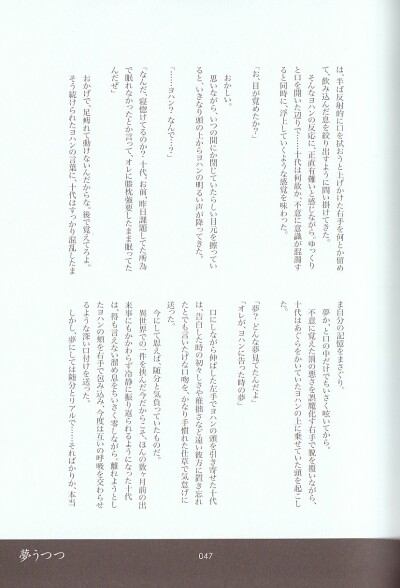 は、半ば反射的に口を拭おうと上げかけた右手を何とか留め
て、飲み込んだ息を絞り出すように問い掛けてきた。
そんなヨハンの反応に、正直有難いと感じながら、ゆっくり
と口を開いた辺りで……十代は何故か、不意に意識が混濁す
ると同時に、浮上していくような感覚を味わった。
「お、目が覚めたか?」
おかしい。
思いながら、いつの間にか閉じていたらしい目元を擦ってい
ると、いきなり頭の上からヨハンの明るい声が降ってきた。
「……ヨハン?なんで…?」
「なんだ、寝惚けてるのか?十代、お前、昨日課題してた所為
で眠れなかったとか言って、オレに膝枕強要したまま眠ってた
んだぜ」
おかげで、足痺れて動けないんだからな。後で覚えてろよ。
そう続けられたヨハンの言葉に、十代はすっかり混乱したま
ま自分の記憶をまさぐり、
夢か、と口の中だけでちいさく呟いてから、
不意に覚えた罰の悪さを誤魔化す右手で腹を覆いながら、
十代はあぐらをかいていたヨハンの上に乗せていた頭を起こし
た。
「夢?どんな夢見てたんだよ」
「オレが、ヨハンに告った時の夢」
口にしながら伸ばした左手でヨハンの頭を引き寄せた十代
は、告白した時の初々しさや稚拙さなど遠い彼方に置き忘れ
たとでも言いたげな口吻を、かなり手慣れた仕草で気怠げに
送った。
今にして思えば、随分と気負っていたものだ。
異世界での一件を挟んだ今だからこそ、ほんの数ヶ月前の出
来事にもかかわらず冷静に振り返られるようになった十代
は、得も言えない溜め息をちいさく零しながら、離れようとし
たヨハンの頬を右手で包み込み、今度は互いの呼吸を交わらせ
るような深い口付けを送った。
しかし、夢にしては随分とリアルで……そればかりか、本当
夢うつつ
047